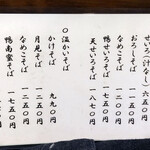 せいろ(汁なし) 六五〇円
おろしそば 一二五〇円
なめこそば 一二五〇円
鴨せいろそば 一七五〇円
天せいろそば 一八七〇円
〇温かいそば
かけそば 九九〇円
月見そば 一一五〇円
なめこそば 一二五〇円
鴨南蛮そば 一七五〇円